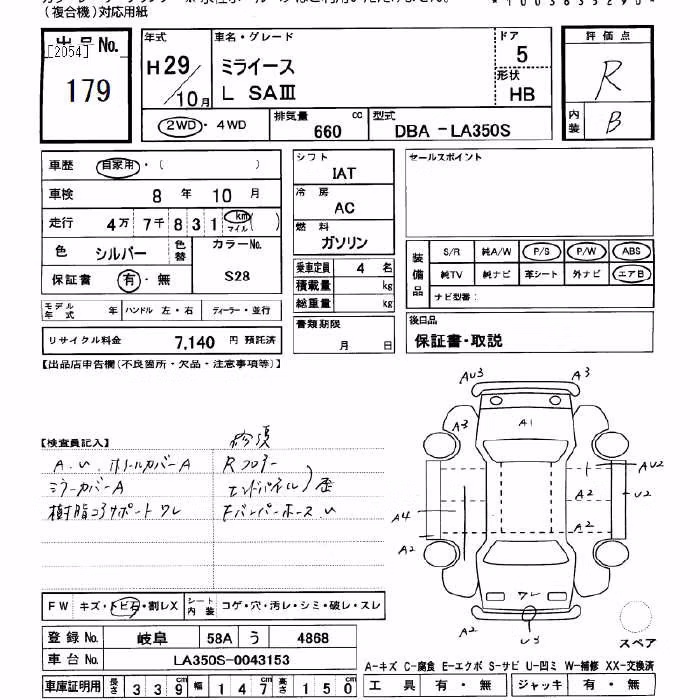 (複合機)対応用紙
*1003635290*
出品No.
[2054]
179
年式
H29/10月
車名・グレード
ミライース
L SAⅢ
ドア
5
形状
HB
評価点
R
内装
B
2WD・4WD
排気量
660 cc
型式
DBA -LA350S
車歴 自家用・( )
車検 8 年 10 月
走行 4万 7千 8 3 1 km マイル ( )
色 シルバー 色替 カラーNo.
保証書 有・無 S28
モデル年式 年 ハンドル 左・右 ディーラー・並行
リサイクル料金 7,140 円 預託済
シフト
IAT
冷房
AC
燃料
ガソリン
乗車定員 4 名
積載量 kg
総重量 kg
書類期限
月 日
セールスポイント
装備品
S/R 純A/W P/S P/W ABS
純TV 純ナビ 革シート 外ナビ エアB
ナビ型番:
後日品
保証書・取説
【出品店申告欄(不良箇所・欠品・注意事項等)】
【検査員記入】
修復
A.U.ホイールカバーA
ミラーカバーA
樹脂コアサポートワレ
Rフロアー
エンドパネル)歪
FバンパーホースU
AU3
A3
A3
A1
AU2
A2
U2
A4
A2
A2
ワレ
A2
U3
スペア
FW キズ・トビ石・割レX
シート内装 コゲ・穴・汚レ・シミ・破レ・スレ
登録No. 岐阜 58A う 4868
車台No. LA350S-0043153
車庫証明用 長さ 339 幅 147 高さ 150
A-キズ C-腐食 E-エクボ S-サビ U-凹ミ W-補修 XX-交換済
工具 有・無 ジャッキ 有・無